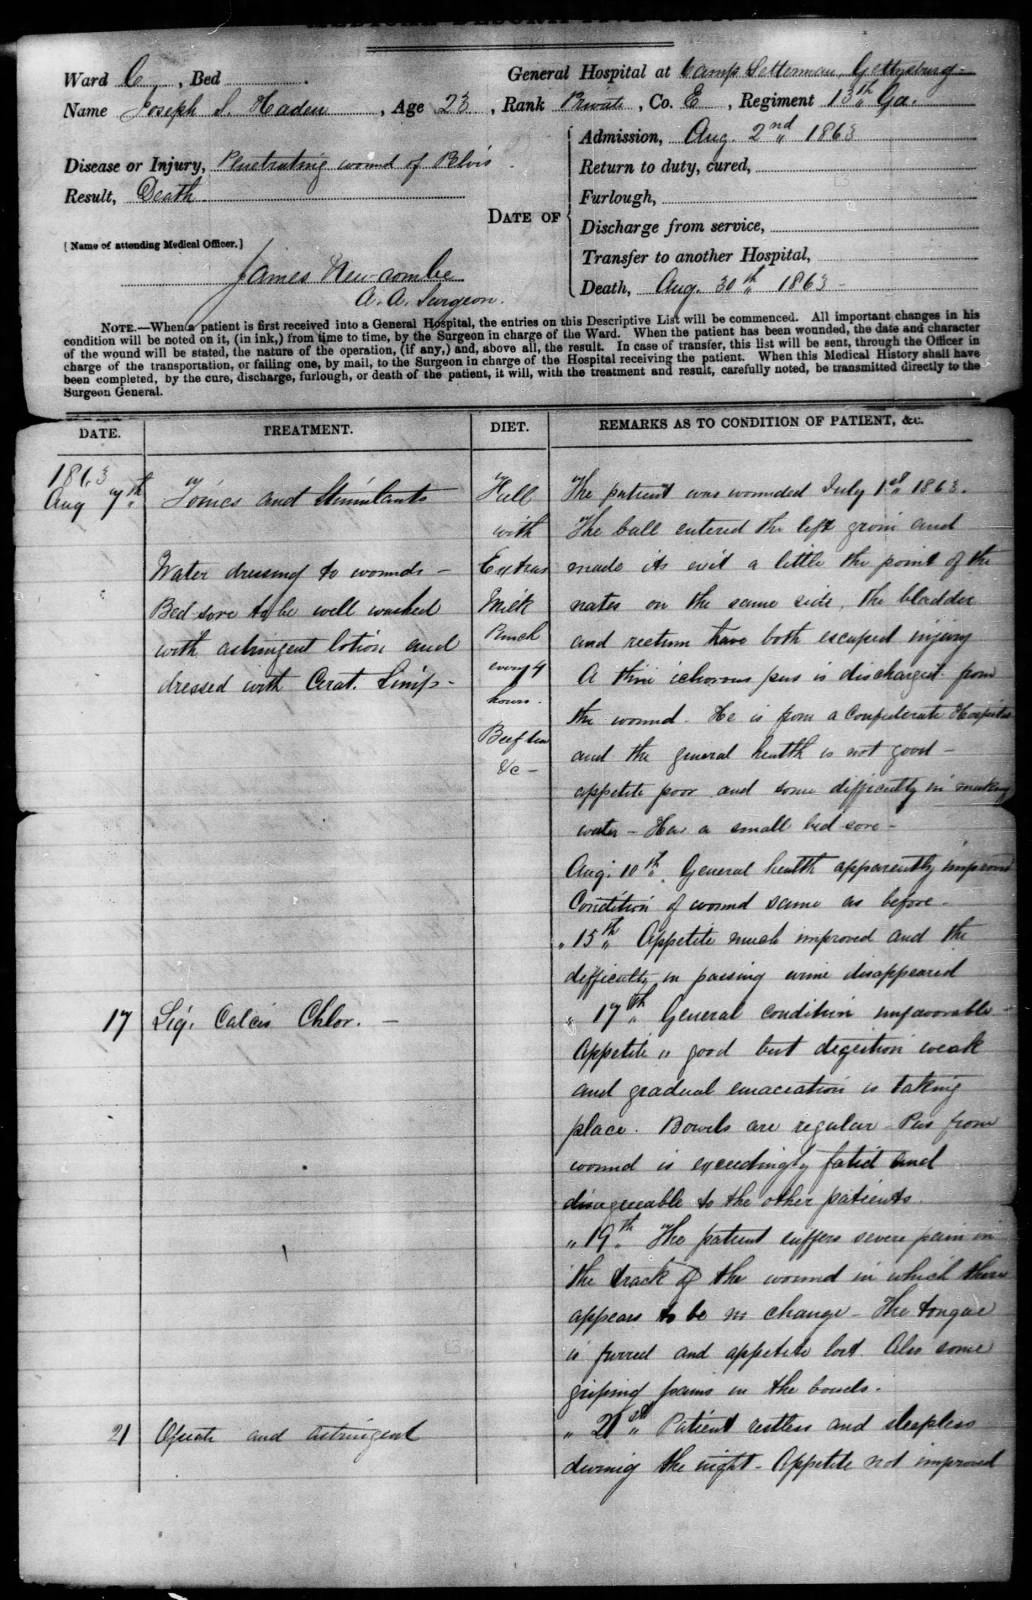 Ward C, Bed
General Hospital at Camp Letterman, Gettysburg
Name Joseph S. Haden, Age 23, Rank Private, Co. E, Regiment 13th Ga.
Disease or Injury, Penetrating wound of Pelvis
Result, Death
[Name of attending Medical Officer.]
James Newcombe
A. A. Surgeon.
DATE OF
Admission, Aug. 2nd 1863
Return to duty, cured,
Furlough,
Discharge from service,
Transfer to another Hospital,
Death, Aug. 30th 1863
NOTE.—When a patient is first received into a General Hospital, the entries on this Descriptive List will be commenced. All important changes in his
condition will be noted on it, (in ink,) from time to time, by the Surgeon in charge of the Ward. When the patient has been wounded, the date and character
of the wound will be stated, the nature of the operation, (if any,) and, above all, the result. In case of transfer, this list will be sent, through the Officer in
charge of the transportation, or failing one, by mail, to the Surgeon in charge of the Hospital receiving the patient. When this Medical History shall have
been completed, by the cure, discharge, furlough, or death of the patient, it will, with the treatment and result, carefully noted, be transmitted directly to the
Surgeon General.
DATE.
TREATMENT.
DIET.
REMARKS AS TO CONDITION OF PATIENT, &c.
1863
Aug 7th
Tonics and Stimulants
Water dressing to wounds -
Bed sore to be well washed
with astringent lotion and
dressed with Cerat. Simp -
Full
with
Extras
Milk
Punch
every 4
hours.
Beef tea
&c -
The patient was wounded July 1st 1863.
The ball entered the left groin and
made its exit a little the point of the
nates on the same side, the bladder
and rectum have both escaped injury
A thin ichorous pus is discharged from
the wound. He is from a Confederate Hospital
and the general health is not good -
appetite poor and some difficulty in making
water - Has a small bed-sore -
Aug: 10th. General health apparently improved
Condition of wound same as before -
" 15th " Appetite much improved and the
difficulty in passing urine disappeared
17 Liq. Calcis Chlor. -
" 17th " General condition unfavorable -
Appetite " good but digestion weak
and gradual emaciation is taking
place. Bowels are regular - Pus from
wound is exceedingly fœtid and
disagreeable to the other patients.
" 19th. The patient suffers severe pain in
the track of the wound in which there
appears to be no change - The tongue
is furred and appetite lost. Also some
griping pains in the bowels.
21 Opiate and astringent
" 21st " Patient restless and sleepless
during the night - Appetite not improved